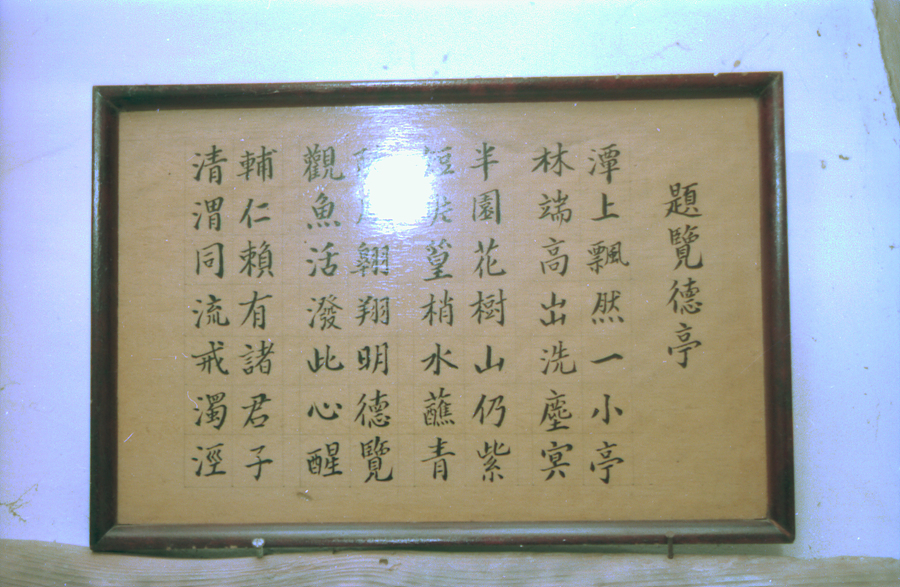 題覽德亭
潭上飄然一小亭
林端高出洗塵冥
半園花樹山仍紫
篁梢水蘸青
翱翔明德覽
觀魚活潑此心醒
輔仁賴有諸君子
清渭同流戒濁涇